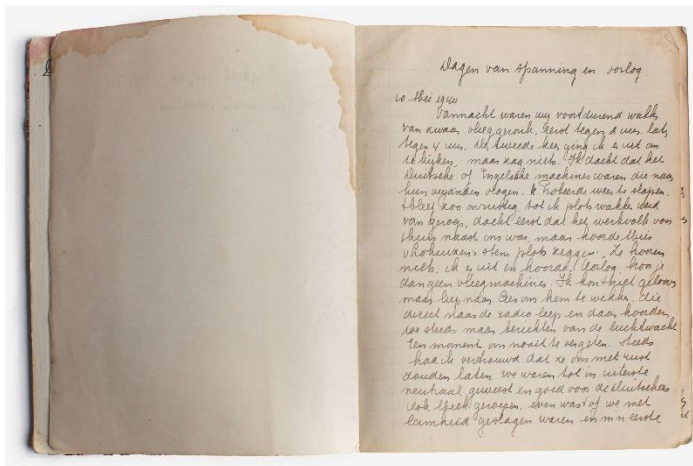 Dagen van spanning en oorlog.
10 Mei 1940
Vannacht waren wij voortdurend wakker
van zwaar vlieg geronk. Eerst tegen 2 uur, later
tegen 4 uur. De tweede keer ging ik er uit om
te kijken, maar zag niets. Ik dacht dat het
Duitsche of Engelsche machines waren die naar
hun vijanden vlogen. Ik probeerde weer te slapen.
bleef zoo onrustig tot ik plots wakker werd
van geroep, dacht eerst dat het werkvolk voor
thuis naast ons was, maar hoorde
stem plots zeggen. Ze hooren
niets, ik er uit en hoorde: Oorlog, hoor je
dan geen vliegmachines. Ik kon t niet gelooven
maar liep naar Cees om hem te wekken. die
direct naar de radio liep en daar hoorden
we steeds maar berichten van de luchtwacht
Een moment om nooit te vergeten. Steeds
had ik vertrouwd dat ze ons met rust
zouden laten. we waren tot in uiterste
neutraal geweest en goed voor de Duitschers
ook geroepen. even was t of we met
lamheid geslagen waren en m'n eerste